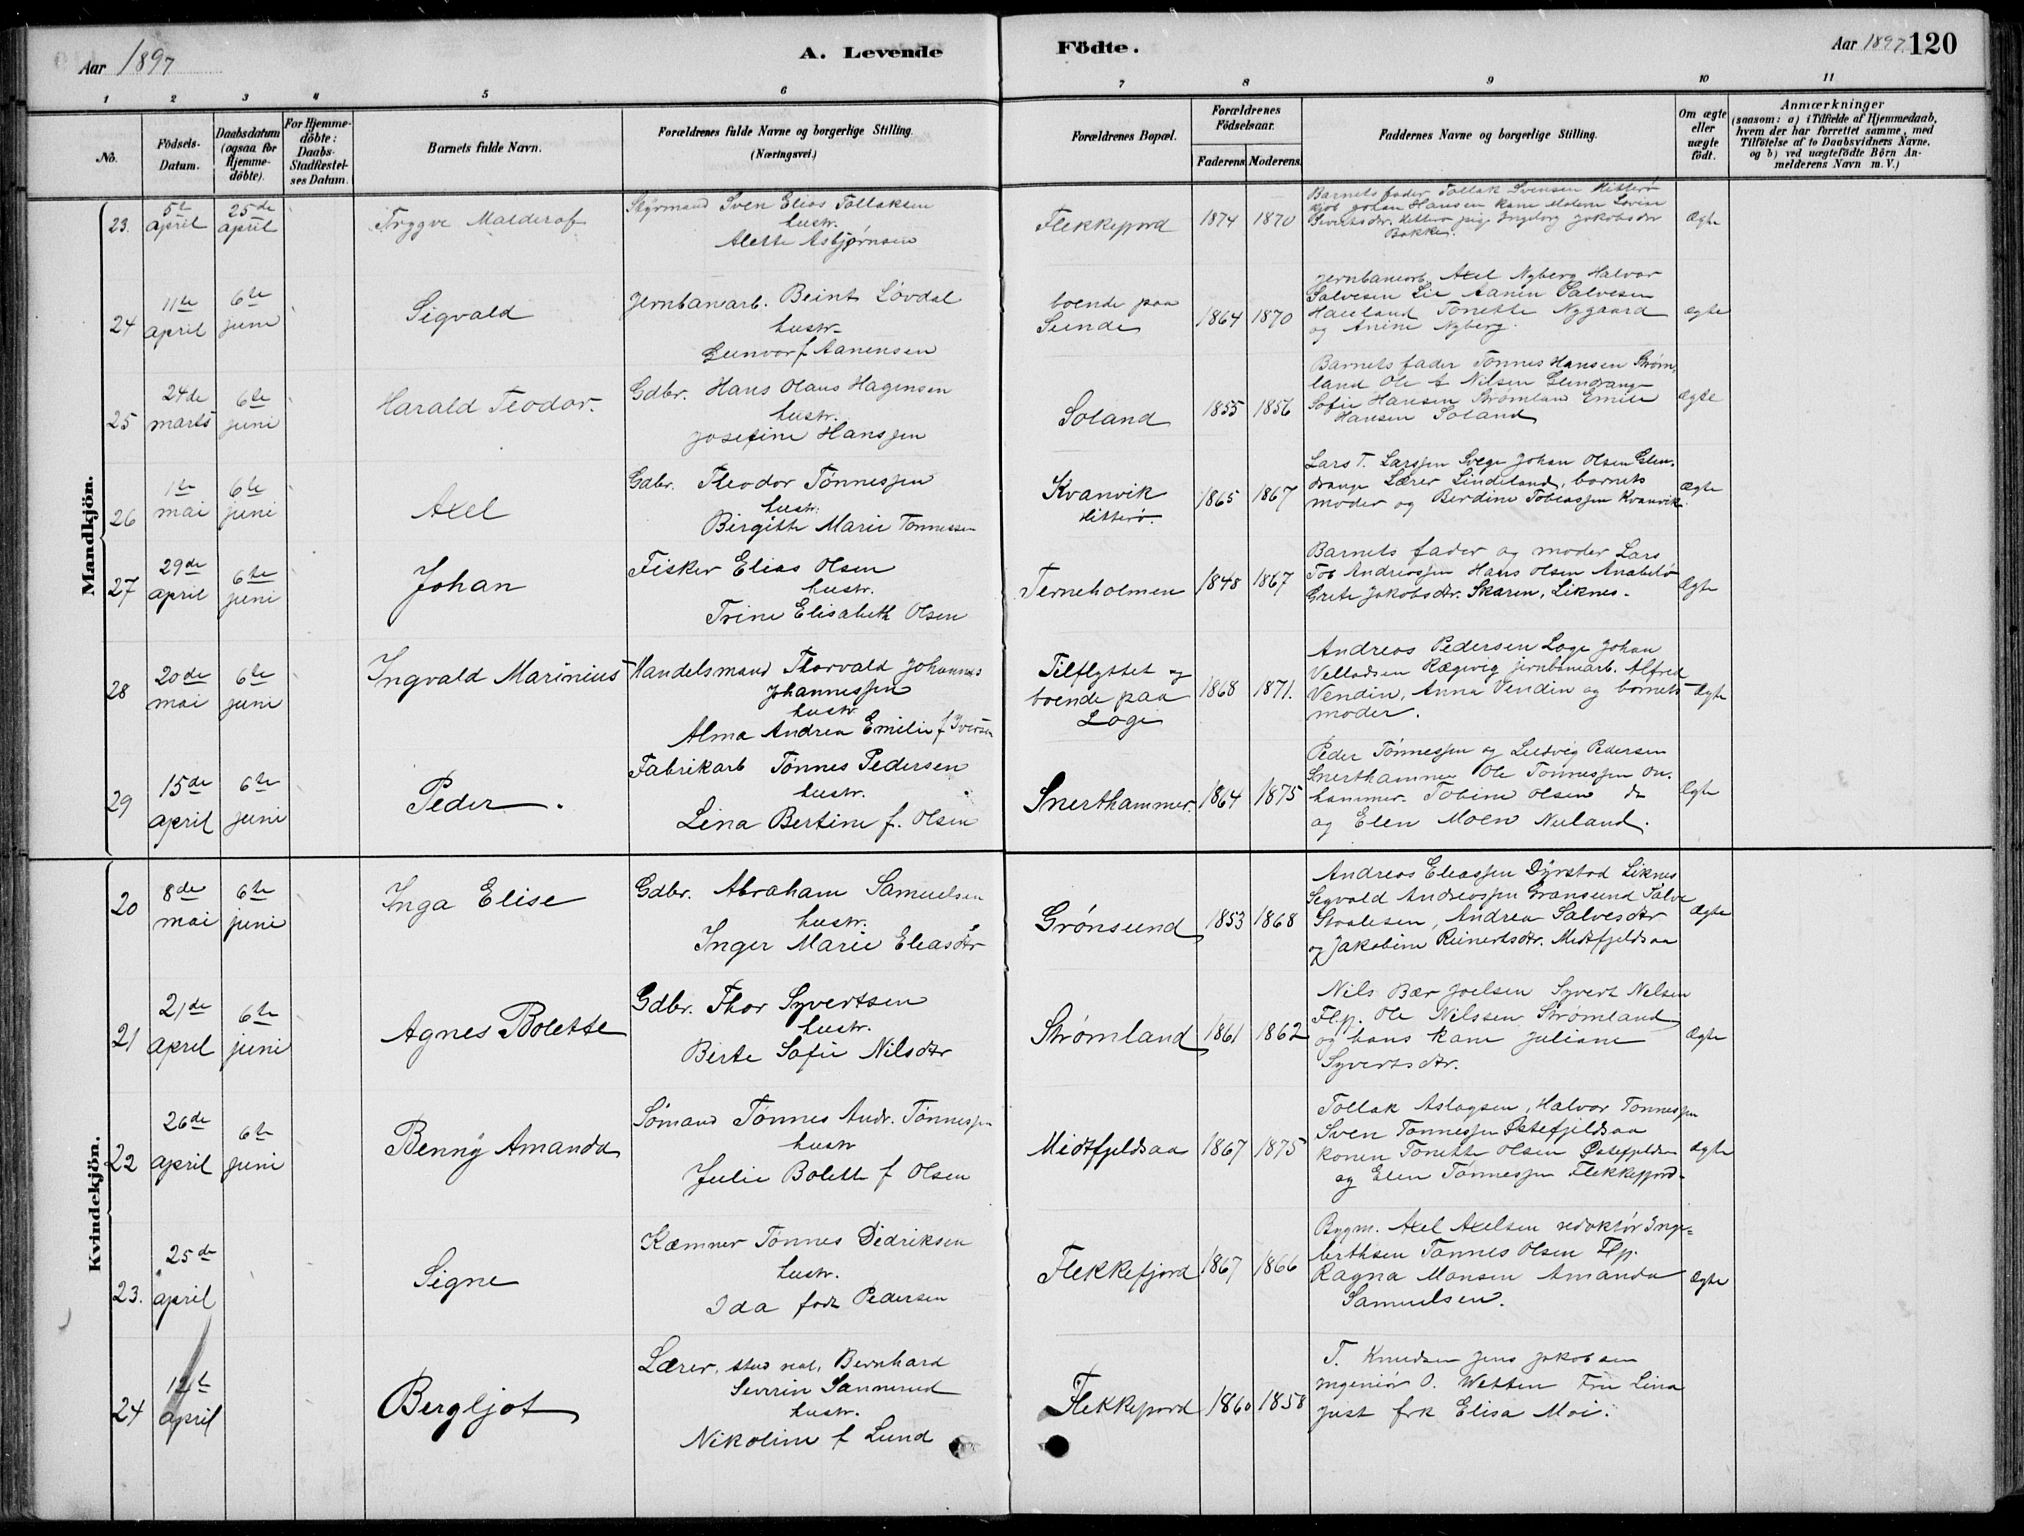 Aar 1897
A. Levende
Födte.
Aar 1897. 120
1 2 3 4 5 6 7 8 9 10 11
No.
Födsels-Datum.
Daabsdatum (ogsaa for Hjemme-döbte).
For Hjemme-döbte: Daabs-Stadfæstel-ses Datum.
Barnets fulde Navn.
Forældrenes fulde Navne og borgerlige Stilling. (Næringsvei.)
Forældrenes Bopæl.
Forældrenes Födselsaar.
Faderens Moderens.
Faddernes Navne og borgerlige Stilling.
Om ægte eller uægte födt.
Anmærkninger
(saasom: a) i Tilfælde af Hjemmedaab,
hvem der har forrettet samme, med
Tilföielse af to Daabsvidners Navne,
og b) ved uægtefödte Börn An-
melderens Navn m. V.)
Mandkjön.
23. 5te april 25de april
Tryggve Malderaf
Styrmand Sven Elias Tollaksen
hustr.
Alette Asbjørnsen
Flekkefjord 1874 1870
Barnets fader Tollak Svensen Hitterø
Johan Hansen kone Malene Lovise
Sivertsdtr. Hitterø pige Ingeborg Jakobsdtr
Bakke.
Ægte
24 11te april 6te juni
Sigvald
Jernbanearb. Beint Løvdal
hustr.
Gunvor f. Aanensen
boende paa
Sunde 1864 1870
Jernbanearb. Axel Nyberg Halvor
Salvesen Lie Aanen Salvesen
Haueland Tonette Nygaard
og Anine Nyberg.
Ægte
25 24de marts 6te juni
Harald Teodor.
Gdbr. Hans Olaus Hagensen
hustr.
Josefine Hanssen
Soland 1855 1856
Barnets fader Tønnes Hansen Strøm-
land Ole A Nilsen Glendrange
Sofie Hansen Strømland Emile
Hansen Soland
Ægte
26 1te mai 6te juni
Axel
Gdbr. Theodor Tønnessen
hustr.
Birgitte Marie Tønnessen
Kvanvik
Hitterø. 1865 1867
Lars T. Larssen Svege Johan Olsen Glen-
drange Lærer Lindeland, barnets
moder og Berdine Tobiassen Kvanvik.
Ægte
27 29de april 6te juni
Johan
Fisker Elias Olsen
hustr.
Trine Elisabeth Olsen
Terneholmen 1848 1867
Barnets fader og moder Lars
Tob Andreassen Hans Olsen Anabelø
Grete Jakobsdtr. Skaren, Liknes.
Ægte
28 20de mai 6te juni
Ingvald Marinius
Handelsmand Thorvald Johannes
Johannessen
hustr
Alma Andrea Emilie f Iversen
Tilflyttet og
boende paa
Loge 1868 1871.
Andreas Pedersen Loge Johan
Velladsen Rægevig jernbanearb. Alfred
Vendin, Anna Vendin og barnets
moder.
Ægte
29 15de april 6te juni
Peder.
Fabrikarb Tønnes Pedersen
hustr.
Lina Bertine f. Olsen
Snerthammer. 1864 1875
Peder Tønnessen og Ludvig Pedersen
Snerthammer Ole Tønnessen
hammer. Tobine Olsen do
og Elen Moen Nuland.
Ægte
Kvindekjön.
20 8de mai 6te juni
Inga Elise
Gdbr. Abraham Samuelsen
hustr.
Inger Marie Eleasdtr
Grønsund 1853 1868
Andreas Eleassen Dyrstad Liknes
Segvald Andreassen Gransund Salve
Staalesen, Andrea Salvesdtr
og Jakobine Reinertsdtr. Midtfjeldsaa
Ægte
21 21de april 6te juni
Agnes Bolette
Gdbr. Thor Syvertsen
hustr.
Berte Sofie Nilsdtr
Strømland 1861 1862
Nils Bær Joelsen Syvert Nelsen
Flp. Ole Nilssen Strømland
og hans kone Juliane
Syvertsdtr.
Ægte
22 26de april 6te juni
Benny Amanda
Sømand Tønnes Andr. Tønnessen
hustr
Julie Bolette f Olsen
Midtfjeldsaa 1867 1875
Tollak Aslagsen, Halvor Tønnessen
Sven Tønnessen Østefjeldsaa
konen Tonette Olsen Østefjeldsaa
og Elen Tønnessen Flekkefjord.
Ægte
23. 25de april
Signe
Kæmner Tønnes Didriksen
hustr.
Ida født Pedersen
Flekkefjord 1867 1866
Bygm. Axel Axelsen redaktør Inge-
brethsen Tønnes Olsen Flp.
Ragna Monsen Amanda
Samuelsen.
Ægte
24 12te april
Bergljot
Lærer, stud real, Bernhard
Severin Sannerud
hustr.
Nikoline f Lund
Flekkefjord 1860 1858
T. Knudsen Jens Jakobsen
Ingeniør O. Wetten Fru Lina
Just frk Elisa Moi.